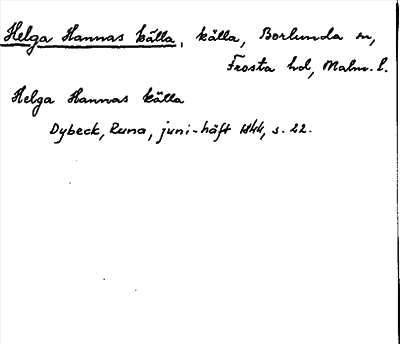 Helga Hannas källa, källa, Borlunda sn,
Frosta hd, Malm. l.
Helga Hannas källa
Dybeck, Runa, juni-häft 1844, s. 22.